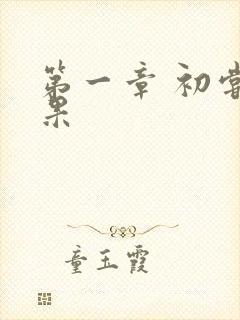 第一章 初尝
果
童玉霞